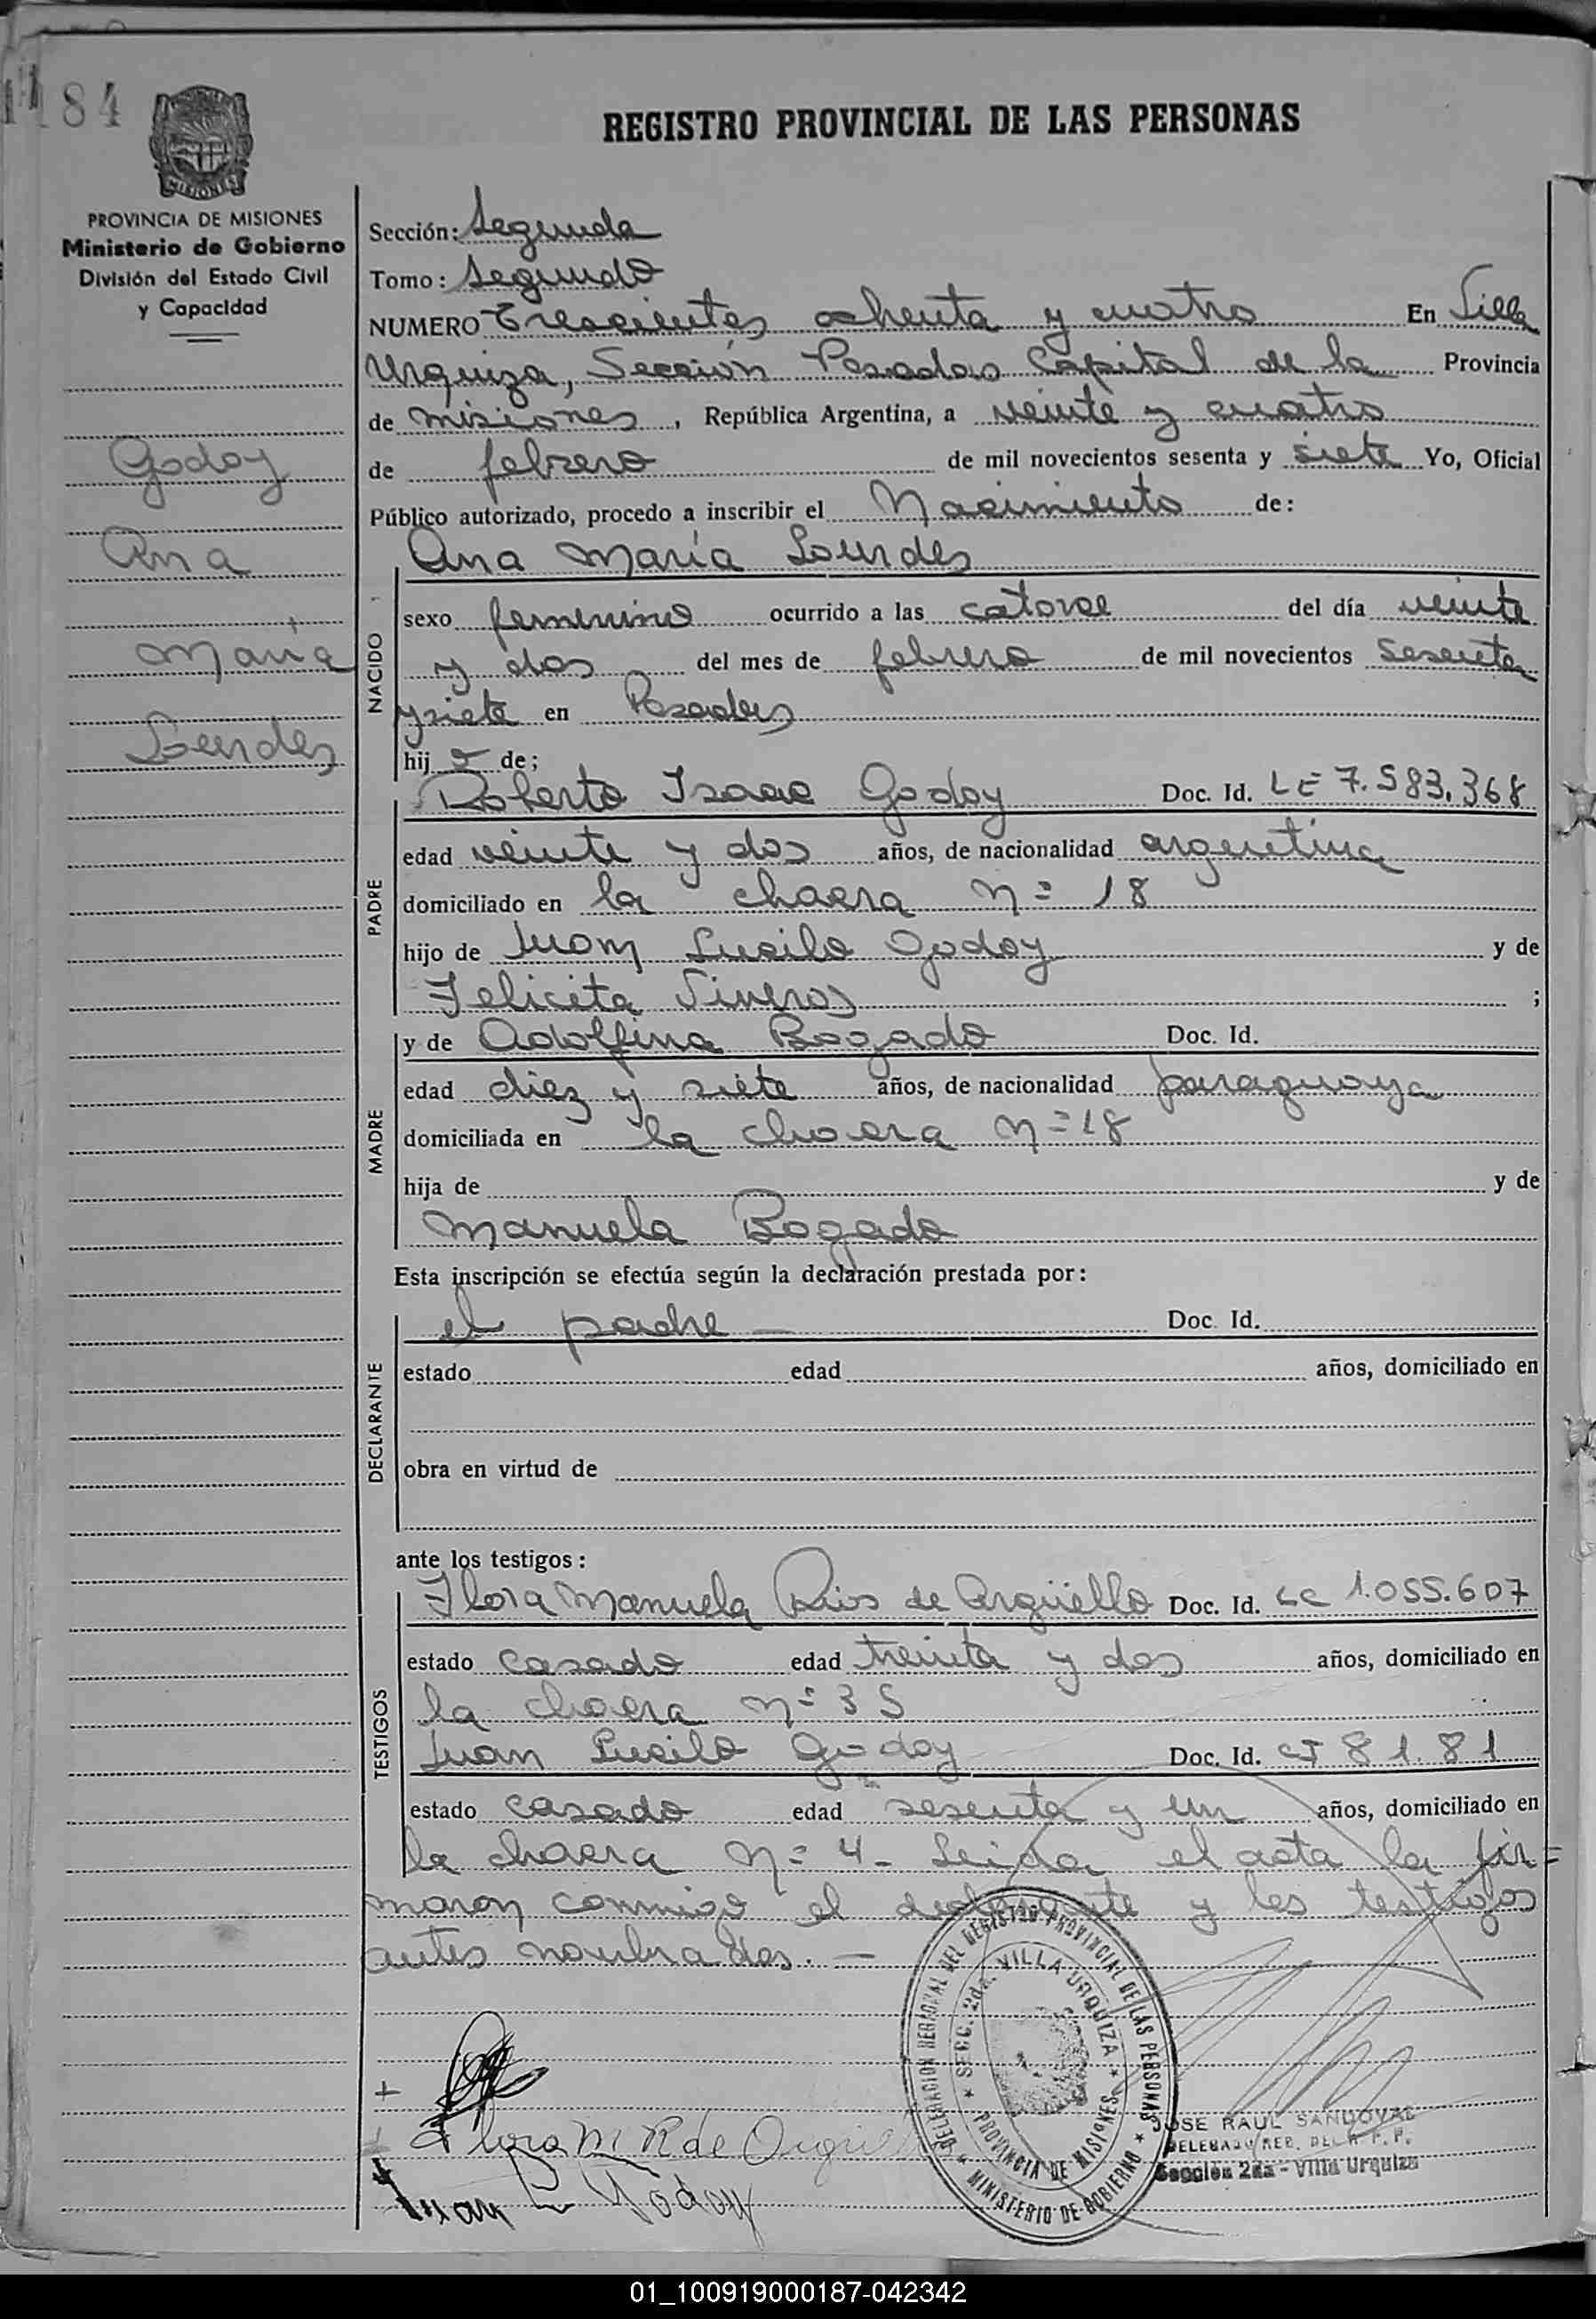 184
REGISTRO PROVINCIAL DE LAS PERSONAS
MISIONES
PROVINCIA DE MISIONES
Ministerio de Gobierno
División del Estado Civil
y Capacidad
Godoy
Ana
María
Lourdes
Sección: Segunda
Tomo: Segundo
NUMERO Trescientos ochenta y cuatro En Villa
Urquiza, Sección Posadas Capital de la Provincia
de misiones, República Argentina, a veinte y cuatro
de febrero de mil novecientos sesenta y siete Yo, Oficial
Público autorizado, procedo a inscribir el Nacimiento de:
Ana María Lourdes
NACIDO
sexo femenino ocurrido a las catorce del día veinte
y dos del mes de febrero de mil novecientos sesenta
y siete en Posadas
hij de;
PADRE
Roberto Isaac Godoy Doc. Id. LE 7.583.368
edad veinte y dos años, de nacionalidad argentina
domiciliado en la chacra nº 18
hijo de Juan Lucilo Godoy y de
Felicita ;
MADRE
y de Adolfina Bogado Doc. Id.
edad diez y siete años, de nacionalidad paraguaya
domiciliada en la chacra nº 18
hija de y de
Manuela Bogado
Esta inscripción se efectúa según la declaración prestada por:
DECLARANTE
el padre — Doc. Id.
estado edad años, domiciliado en
obra en virtud de
ante los testigos:
TESTIGOS
Flora Manuela Rios de Argüello Doc. Id. LC 1.055.607
estado casado edad treinta y dos años, domiciliado en
la chacra nº 35
Juan Lucilo Godoy Doc. Id. CI 81.81
estado casado edad sesenta y un años, domiciliado en
la chacra nº 4 - Leida el acta la fir=
maron conmigo el declarante y los testigos
antes nombrados. —
DELEGACION REGIONAL DEL REGISTRO PROVINCIAL DE LAS PERSONAS
* SECC. 2da. VILLA URQUIZA *
PROVINCIA DE MISIONES
* MINISTERIO DE GOBIERNO *
Flora M R de
Juan L Godoy
JOSE RAUL SANDOVAL
DELEGADO REG. DEL R. P. P.
Sección 2da - Villa Urquiza
01_100919000187-042342